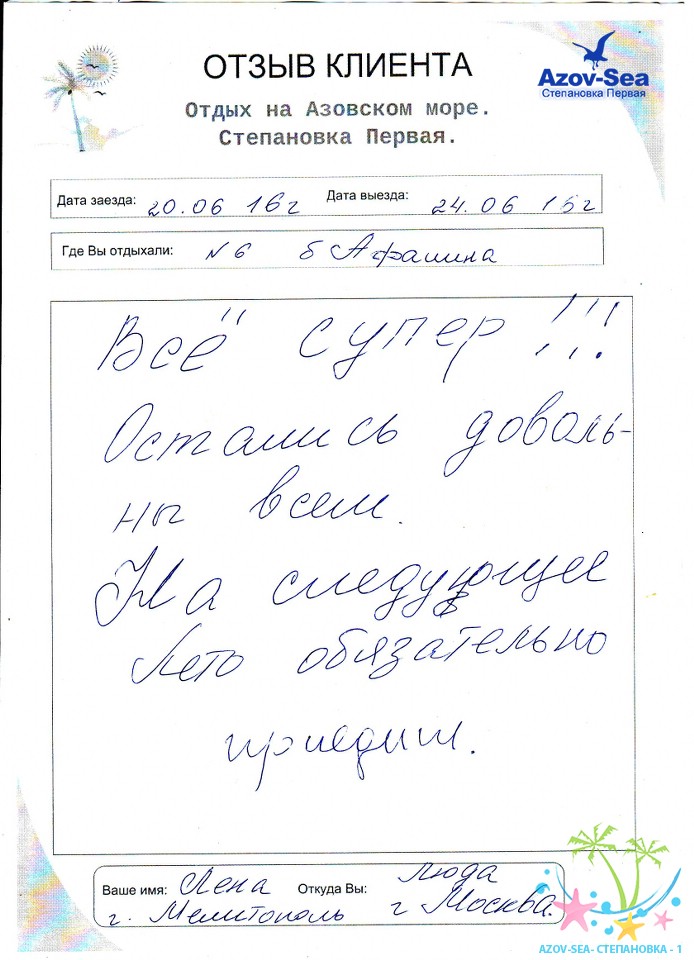 ОТЗЫВ КЛИЕНТА
Azov-Sea
Степановка Первая
Отдых на Азовском море.
Степановка Первая.
Дата заезда: 20.06 16 г Дата выезда: 24.06 16 г
Где Вы отдыхали: № 6 б Афашина
Всё супер!!!
Остались доволь-
ны всем.
На следующее
лето обязательно
приедим.
Ваше имя: Лена Откуда Вы: Люда
г. Мелитополь г Москва.
AZOV-SEA- СТЕПАНОВКА - 1